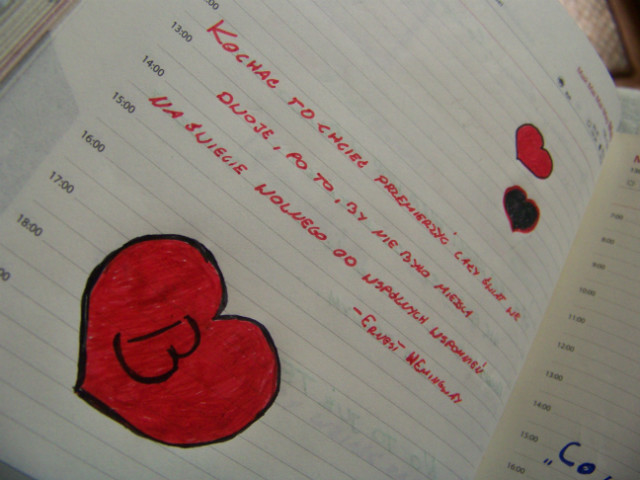 :00
13:00
14:00
15:00
16:00
17:00
18:00
:00
KOCHAĆ TO CHCIEĆ PRZEMIERZYĆ CAŁY ŚWIAT WE
DWOJE, PO TO, BY NIE BYŁO MIEJSCA
NA ŚWIECIE WOLNEGO OD WSPÓLNYCH WSPOMNIEŃ
-ERNEST HEMINGWAY
B
7:00
8:00
9:00
10:00
11:00
12:00
13:00
14:00
15:00
16:00
„Co